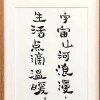 宇宙山河浪漫
生活点滴温暖